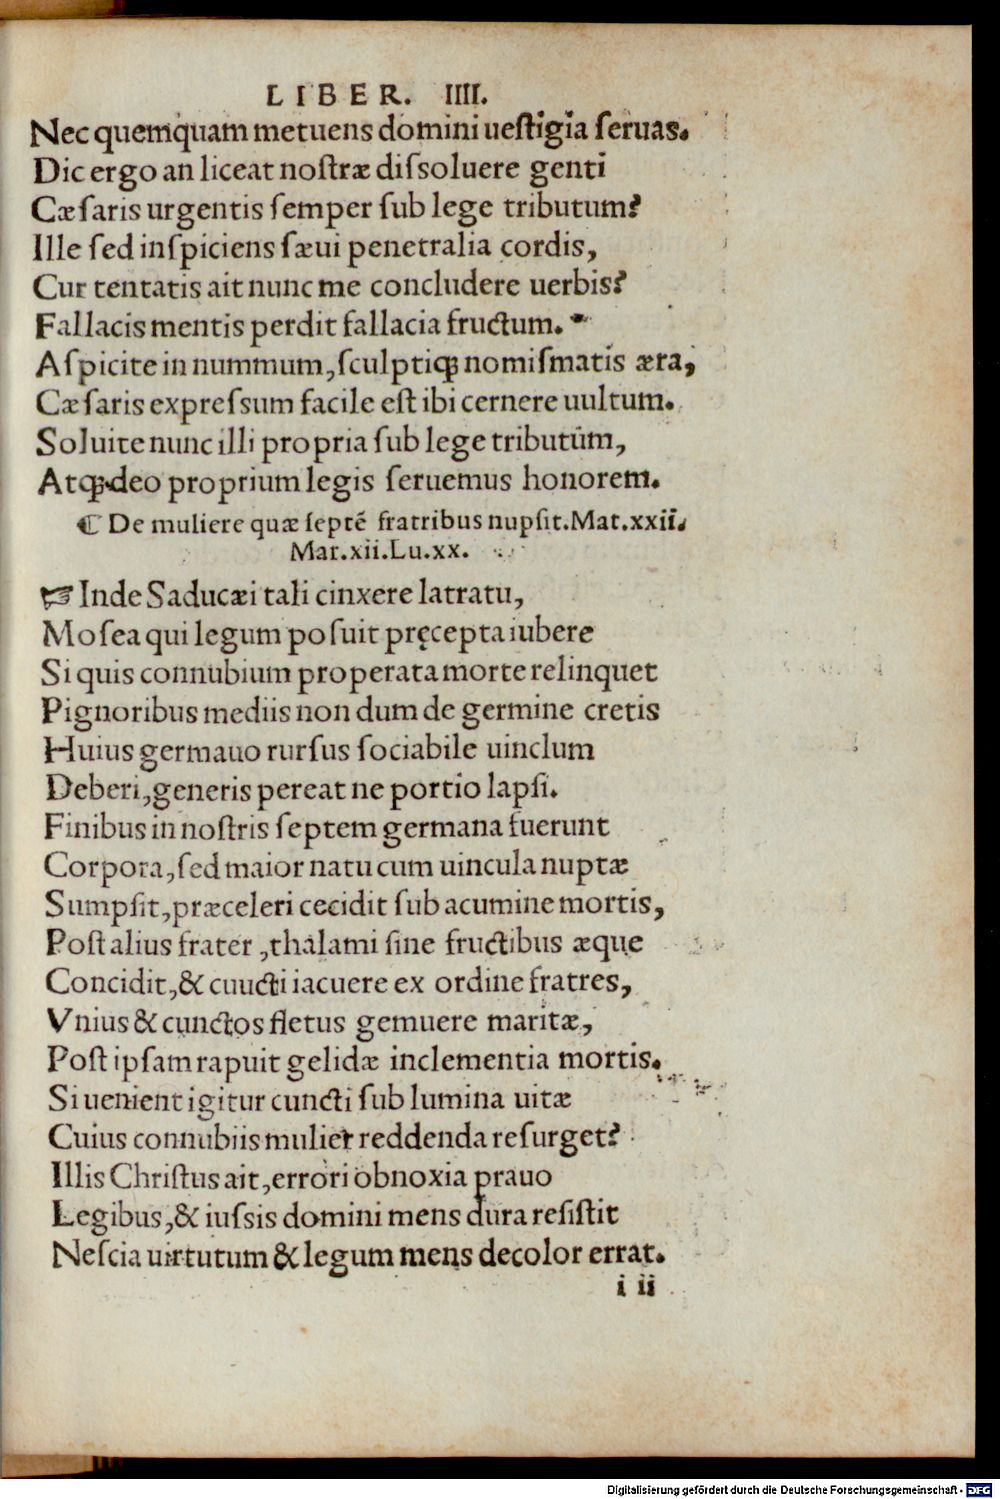 LIBER. IIII.
Nec quemquam metuens domini uestigia seruas.
Dic ergo an liceat nostræ dissoluere genti
Cæsaris urgentis semper sub lege tributum?
Ille sed inspiciens sæui penetralia cordis,
Cur tentatis ait nunc me concludere uerbis?
Fallacis mentis perdit fallacia fructum.
Aspicite in nummum, sculptiqꝫ nomismatis æra,
Cæsaris expressum facile est ibi cernere uultum.
Soluite nunc illi propria sub lege tributum,
Atqꝫ deo proprium legis seruemus honorem.
⸿ De muliere quæ septē fratribus nupsit. Mat. xxii.
Mar. xii. Lu. xx.
☞ Inde Saducæi tali cinxere latratu,
Mosea qui legum posuit pręcepta iubere
Si quis connubium properata morte relinquet
Pignoribus mediis non dum de germine cretis
Huius germauo rursus sociabile uinclum
Deberi, generis pereat ne portio lapsi.
Finibus in nostris septem germana fuerunt
Corpora, sed maior natu cum uincula nuptæ
Sumpsit, præceleri cecidit sub acumine mortis,
Post alius frater, thalami sine fructibus æque
Concidit, & cuucti iacuere ex ordine fratres,
Vnius & cunctos fletus gemuere maritæ,
Post ipsam rapuit gelidæ inclementia mortis.
Si uenient igitur cuncti sub lumina uitæ
Cuius connubiis mulier reddenda resurget?
Illis Christus ait, errori obnoxia prauo
Legibus, & iussis domini mens dura resistit
Nescia uirtutum & legum mens decolor errat.
i ii
Digitalisierung gefördert durch die Deutsche Forschungsgemeinschaft - DFG